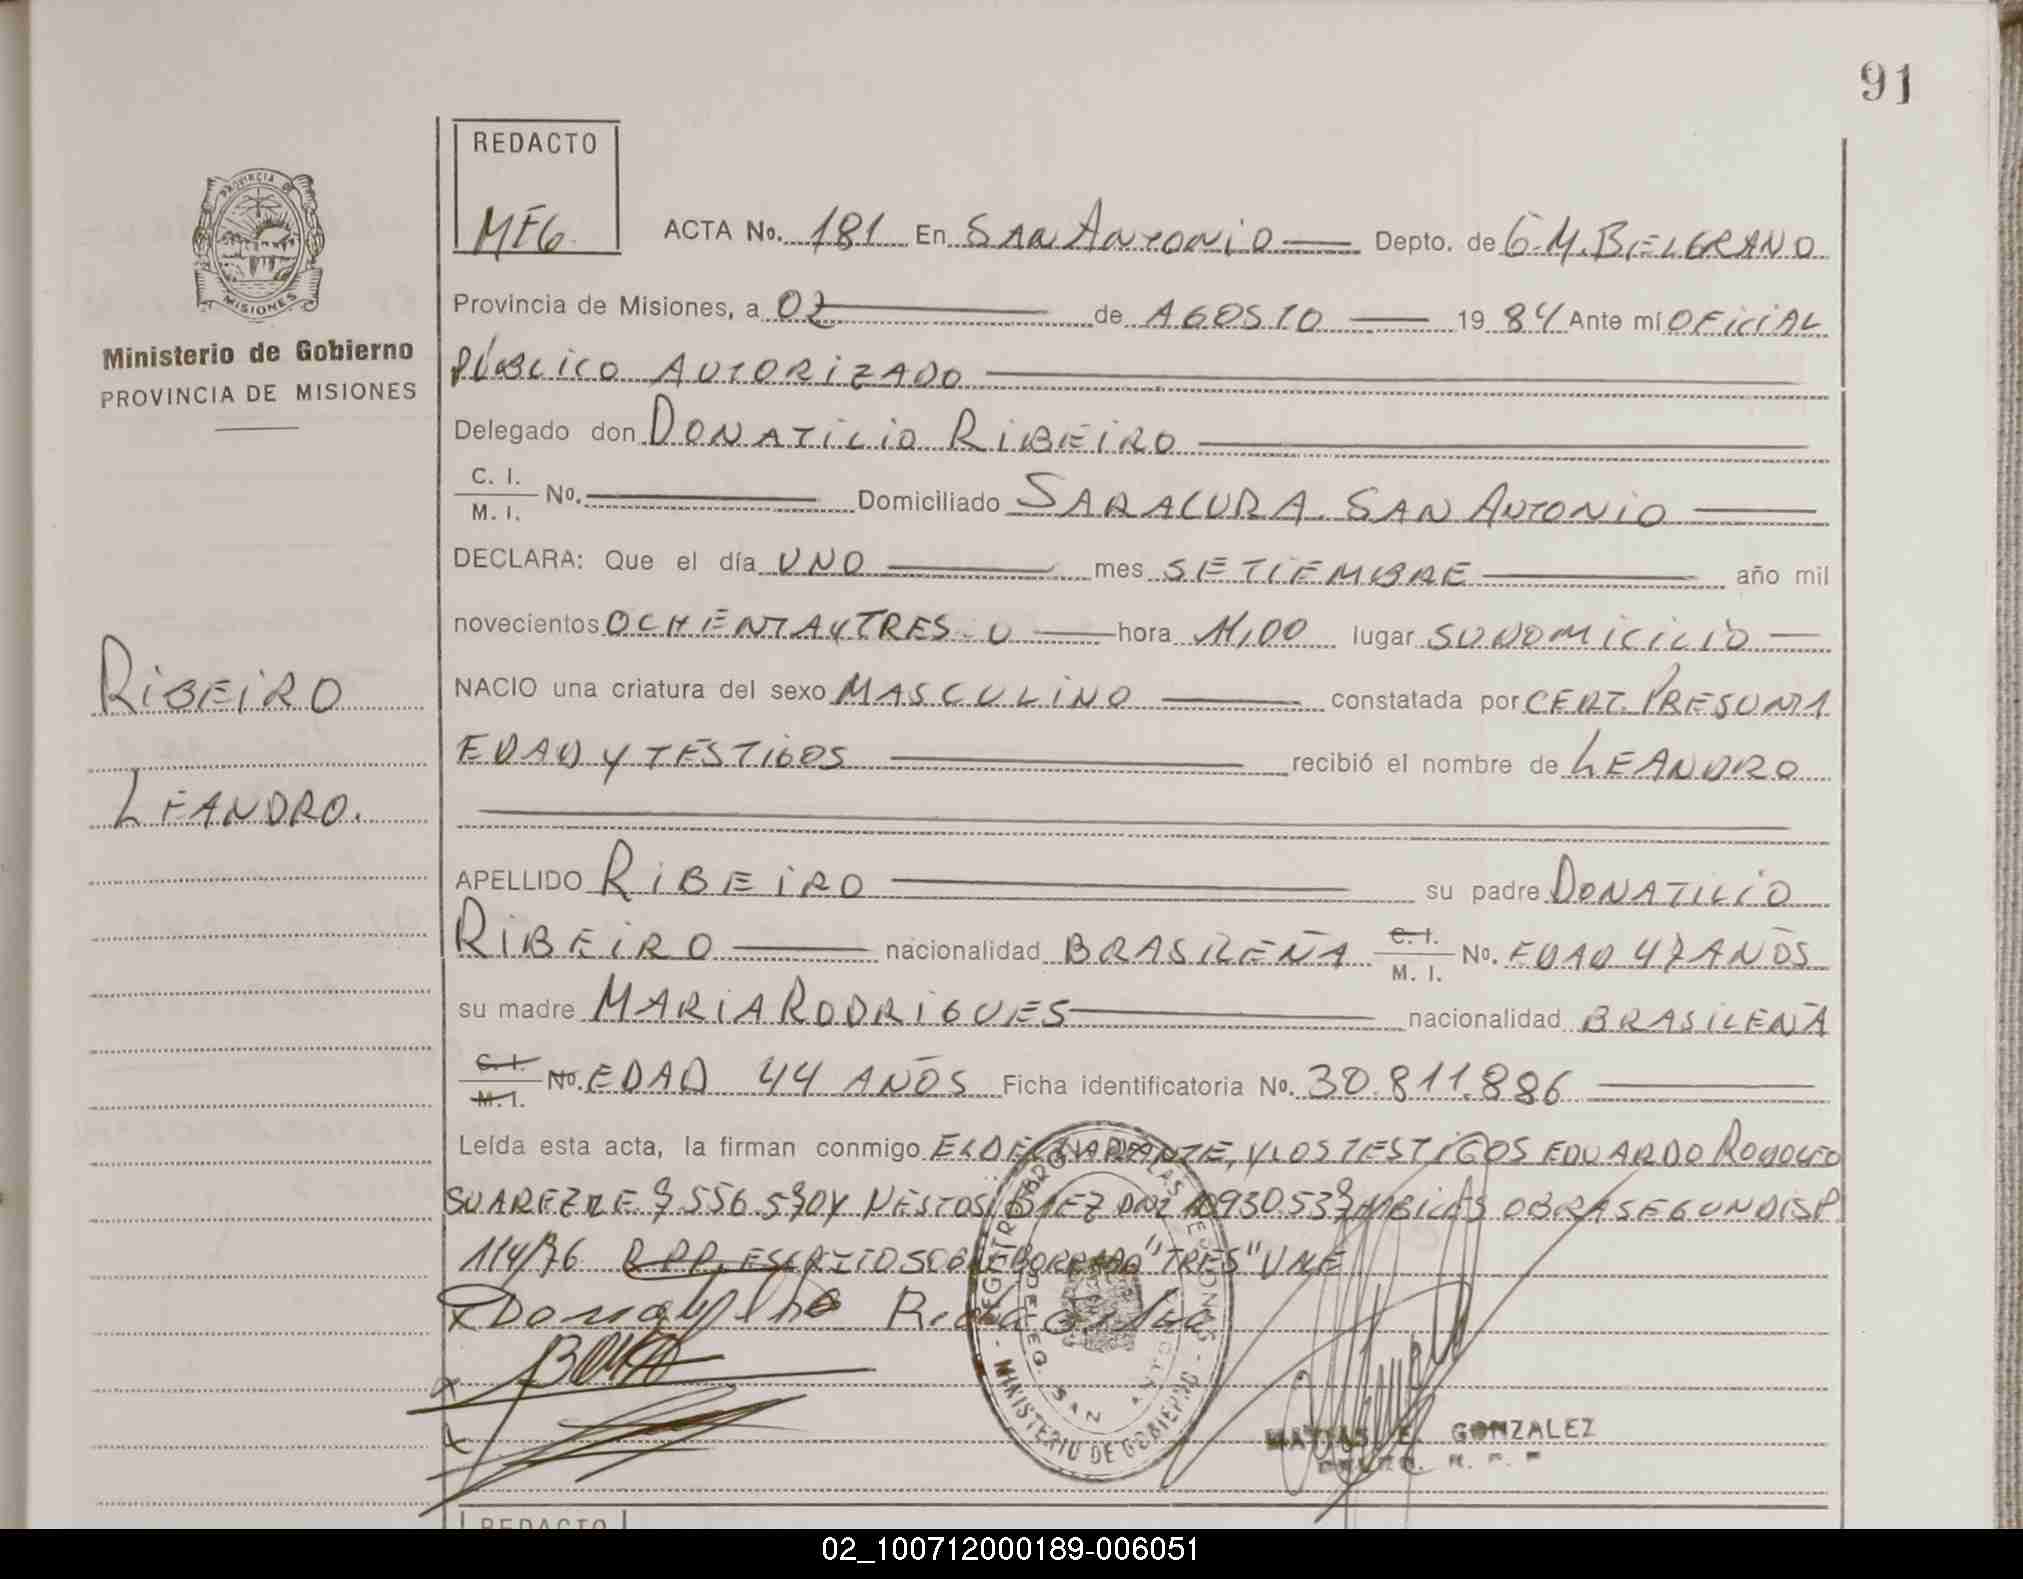 91
REDACTO
MEG.
ACTA No. 181 En SAN ANTONIO Depto. de G.M.BELGRANO
PROVINCIA DE MISIONES
Provincia de Misiones, a 02 de AGOSTO 1984 Ante mí OFICIAL
Ministerio de Gobierno
PROVINCIA DE MISIONES
PUBLICO AUTORIZADO
Delegado don DONATILIO RIBEIRO
C. I.
M. I. No. Domiciliado SARACURA SAN ANTONIO
DECLARA: Que el día UNO mes SETIEMBRE año mil
novecientos OCHENTA Y TRES hora 11,00 lugar SU DOMICILIO
RIBEIRO
NACIO una criatura del sexo MASCULINO constatada por CERT. PRESUNTA
EDAD Y TESTIGOS recibió el nombre de LEANDRO
LEANDRO.
APELLIDO RIBEIRO su padre DONATILIO
RIBEIRO nacionalidad BRASILEÑA C. I. M. I. No. EDAD 47 AÑOS
su madre MARIA RODRIGUES nacionalidad BRASILEÑA
C. I. M. I. No. EDAD 44 AÑOS Ficha identificatoria No. 30.811.886
Leída esta acta, la firman conmigo EL DECLARANTE, Y LOS TESTIGOS EDUARDO RODOLFO
SUAREZ 7.556.570 Y OBRA SEGUN DISP.
114/76 R.P.P. ESCRITO SOBRE BORRADO "TRES" VALE
REGISTRO DE LAS PERSONAS
DELEG. SAN ANTONIO
MINISTERIO DE GOBIERNO
MATIAS E. GONZALEZ
REDACTO
02_100712000189-006051